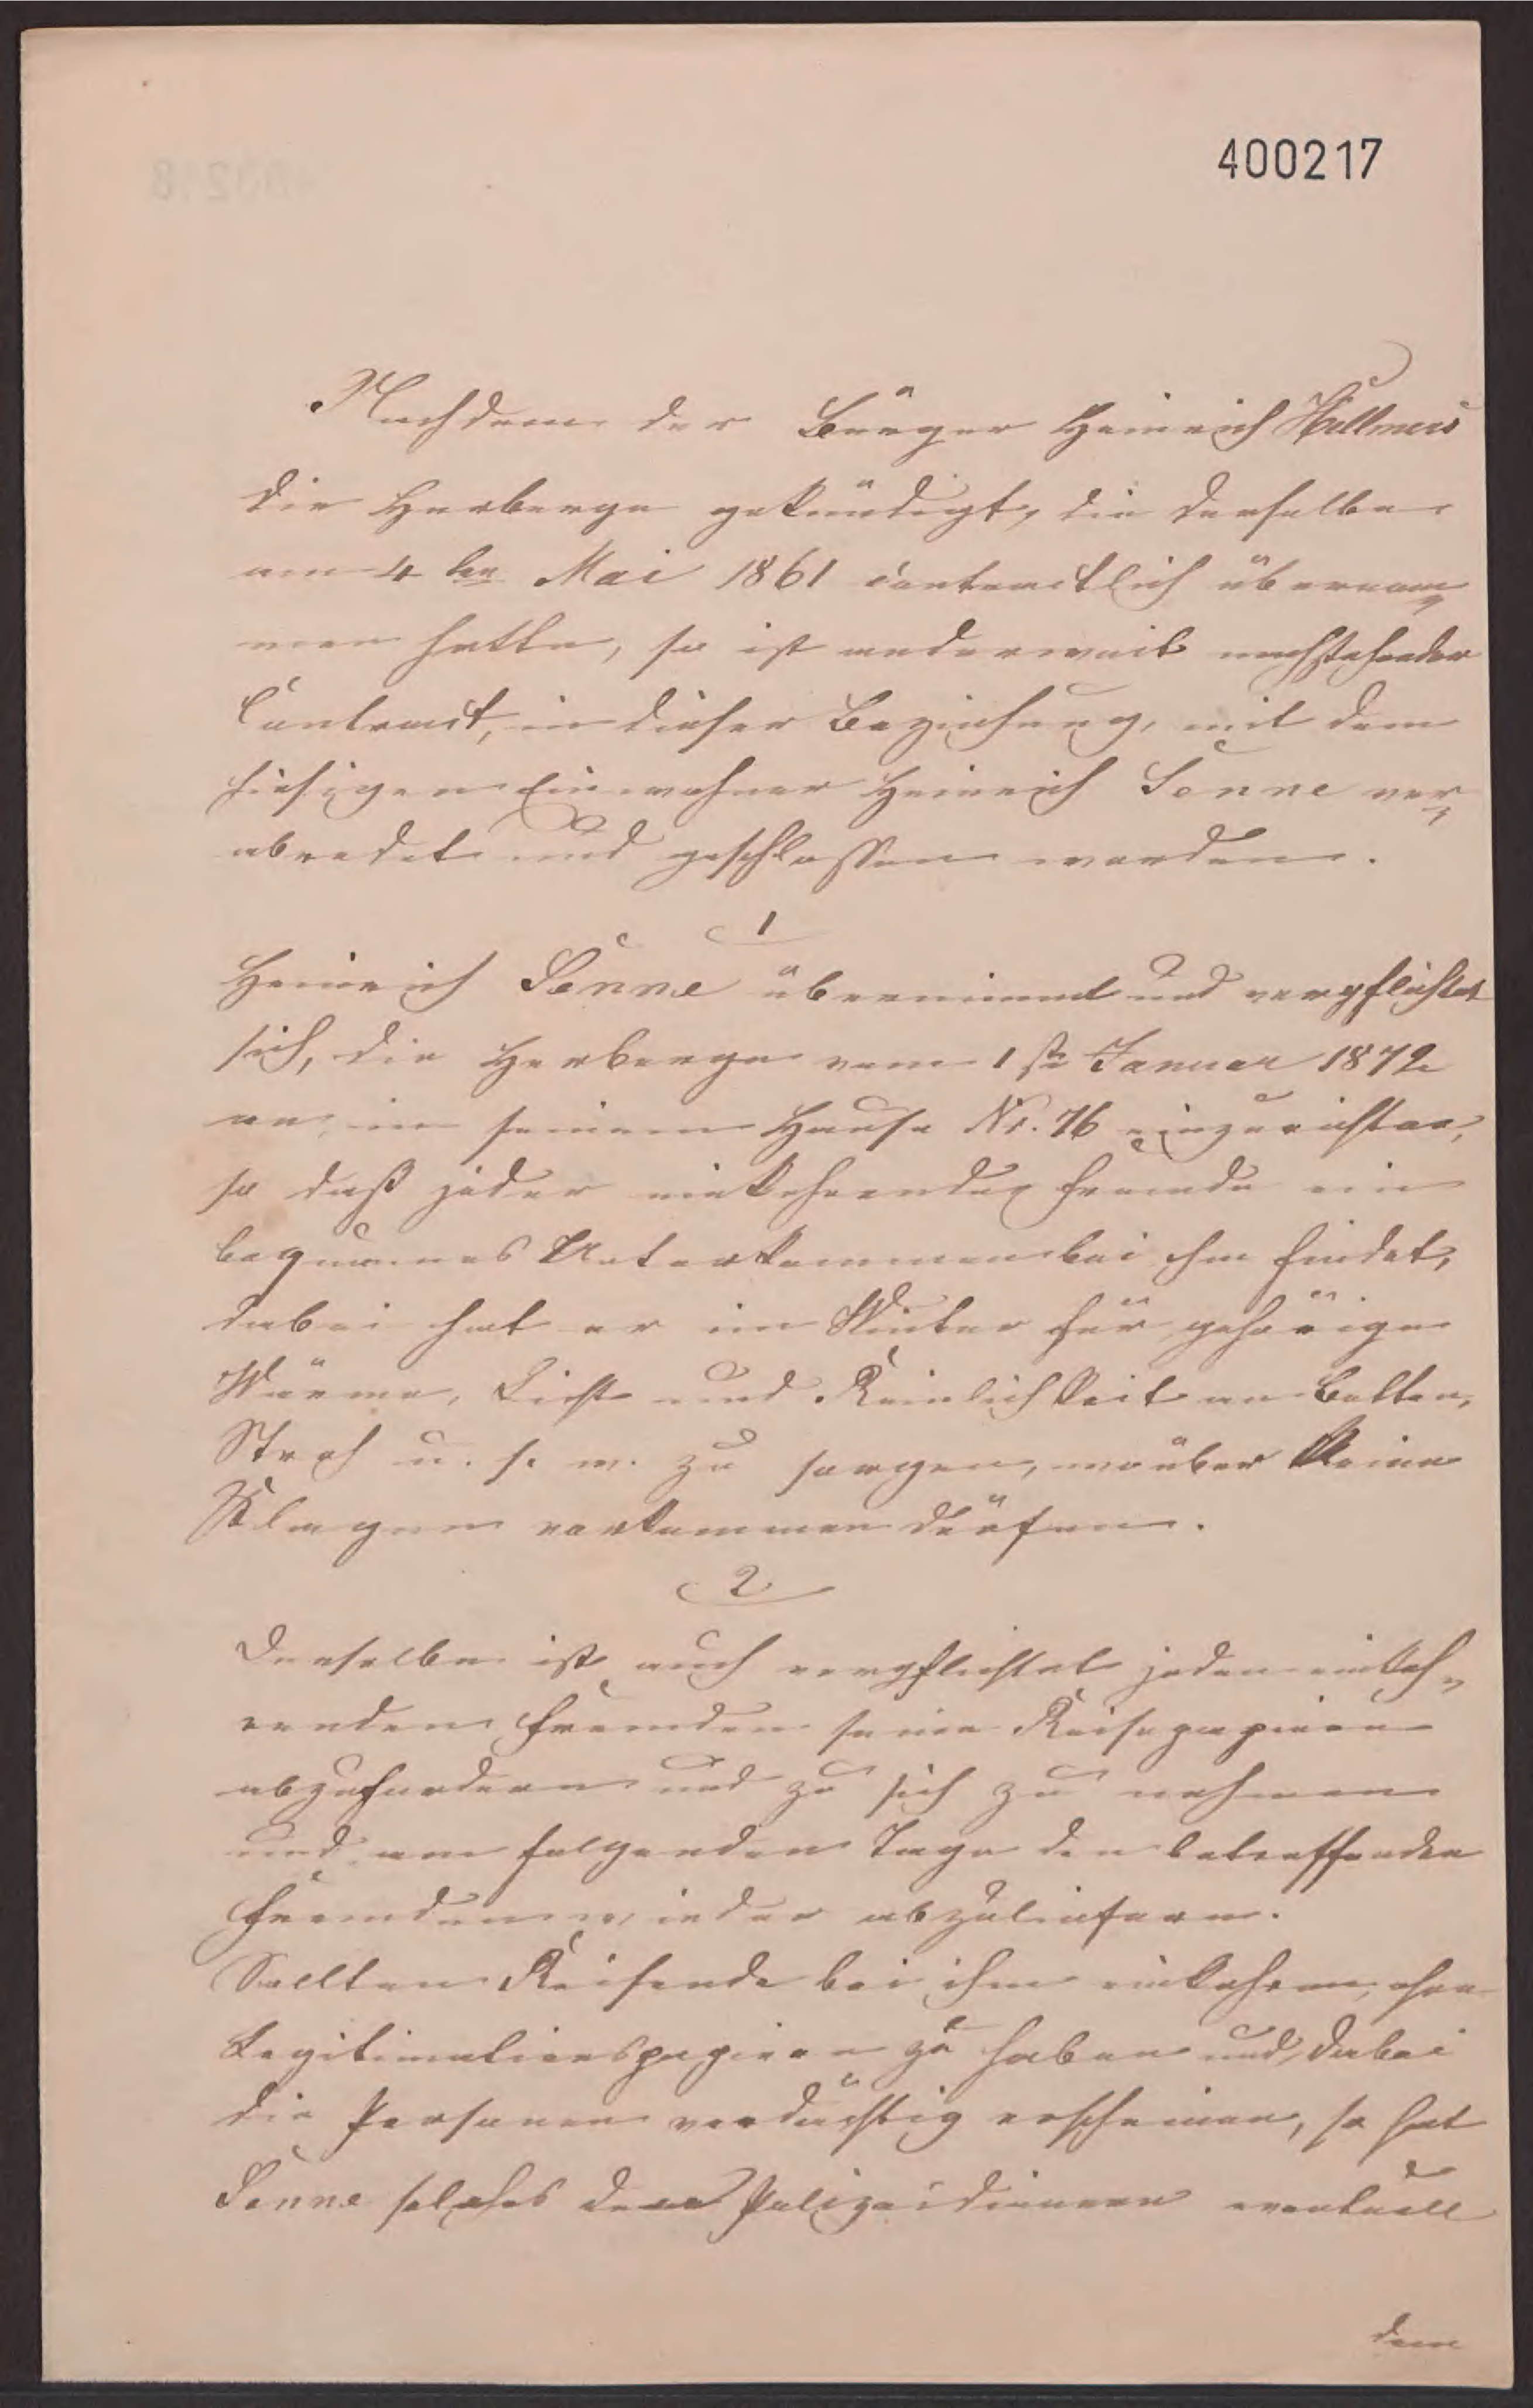 400217
Nachdem der Bürger Heinrich Hillmers
die Herberge gekündigt, die derselbe
am 4ten Mai 1861 contractlich übernom¬
men hatte, so ist anderweit nachstehender
Contract, in dieser Beziehung, mit dem
hiesigen Einwohner Heinrich Senne ver¬
abredet und geschlossen worden.
1
Heinrich Senne übernimmt und verpflichtet
sich, die Herberge vom 1ste Januar 1872
an, in seinem Hause Nr. 76 einzurichten,
so daß jeder einkehrende Fremde ein
bequemes Unterkommen bei ihm findet,
dabei hat er im Winter für gehörige
Wärme, Licht und Reinlichkeit an Betten,
Stroh u. s. w. zu sorgen, worüber keine
Klagen vorkommen dürfen.
2
Derselbe ist auch verpflichtet jeden einkeh¬
renden Fremden seine Reisepapiere
abzufordern und zu sich zu nehmen
und am folgenden Tage den betreffenden
Fremden wieder abzuliefern.
Sollten Reisende bei ihm einkehren, ohne
Legitimationspapiere zu haben und dabei
die Personen verdächtig erscheinen, so hat
Senne solches dem Polizeidiener eventuell
dem